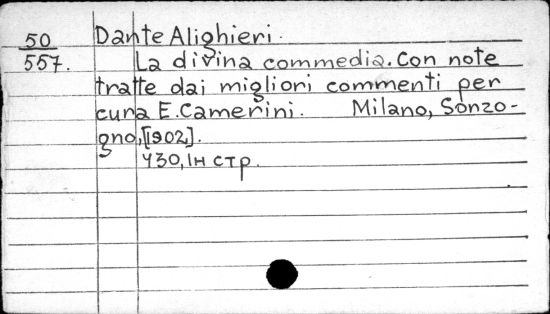 50
557.
Dante Alighieri.
La divina commedia. Con note
tratte dai migliori commenti per
cura E. Camerini. Milano, Sonzo-
gno, [1902].
430, 1н стр.